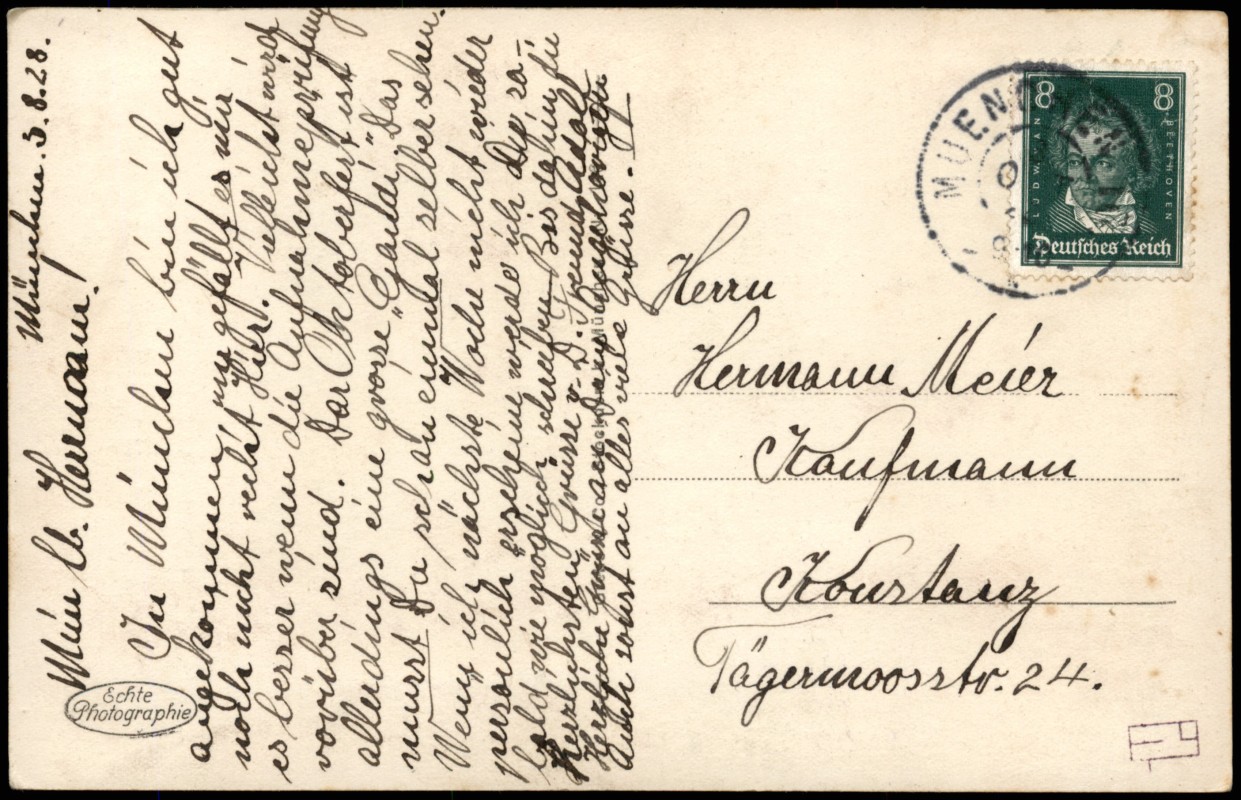 München. 3.8.28.
Mein lb. Hermann!
In München bin ich gut
angekommen, nur gefällt es mir
noch nicht recht hier. Vielleicht wird
es besser wenn die Aufnahmeprüfung
vorüber sind. Das Oktoberfest ist
allerdings eine grosse "Gaudi". Das
musst Du schon einmal selber sehen.
Wenn ich nächste Woche nicht wieder
persönlich "erscheine werde ich Dir, so-
bald wie möglich, schreiben. Bis dahin die
herzlichsten "Grüsse v. D. Freund Adolf
Herzliche
Auch sonst an alles viele Grüsse.-
Echte
Photographie
MUENCHEN
8 8
LUDWIG VAN BEETHOVEN
Deutsches Reich
Herrn
Hermann Meier
Kaufmann
Konstanz
Tägermoosstr. 24.